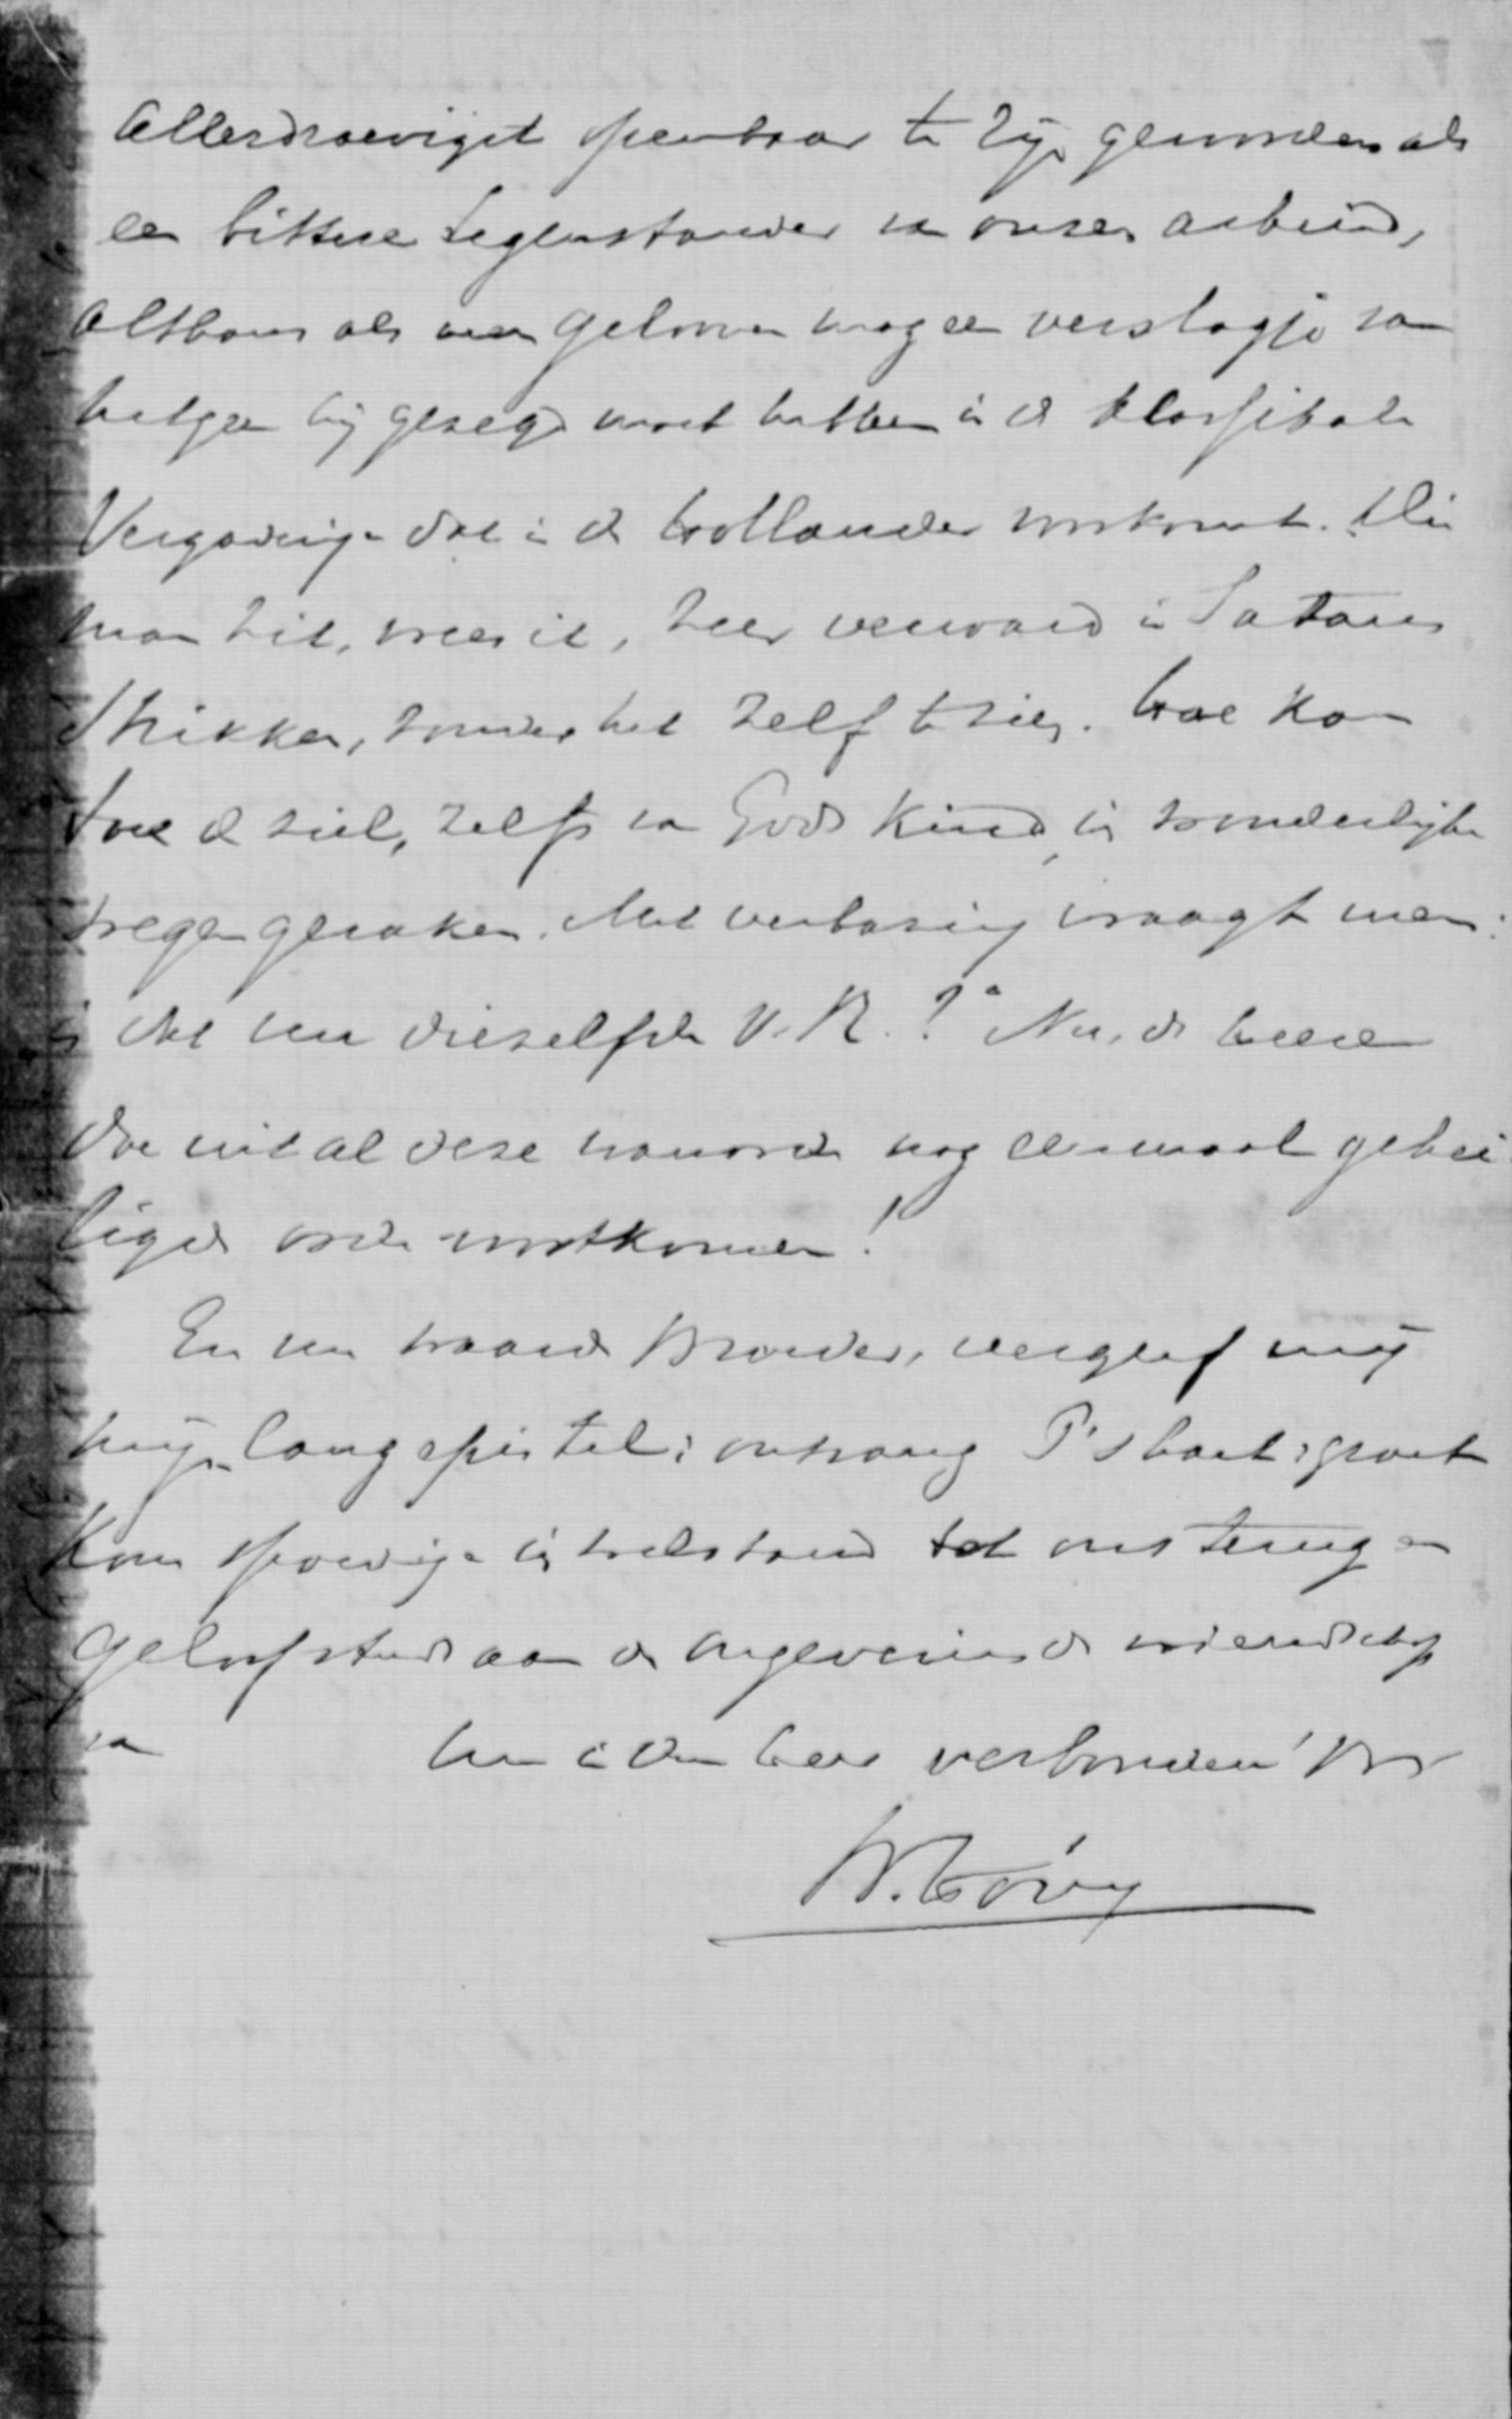 allerdroevigst openbaar te zijn geworden als
een bittere tegenstander van onzen arbeid,
althans als men gelooven mag een verslagje van
hetgeen hij gezegd moet hebben in de Klassikale
Vergadering dat in de Hollander voorkomt. Die
man zit, vrees ik, zeer verward in Satans
strikken, zonder het zelf te zien. Hoe kan
toch de ziel, zelfs van Gods kind, in zonderlijke
wegen geraken. Met verbazing vraagt men:
is dat nu diezelfde V. R.? Nu, de Heere
doe uit al deze wanorde nog eenmaal gehei-
ligde orde voortkomen!
En nu waarde Broeder, vergeef mij
mijn lang epistel; ontvang groet
Kom spoedig in welstand tot ons terug en
geloof steeds aan de ongeveinsde vriendschap
van
Uw in den Heer verbonden Br